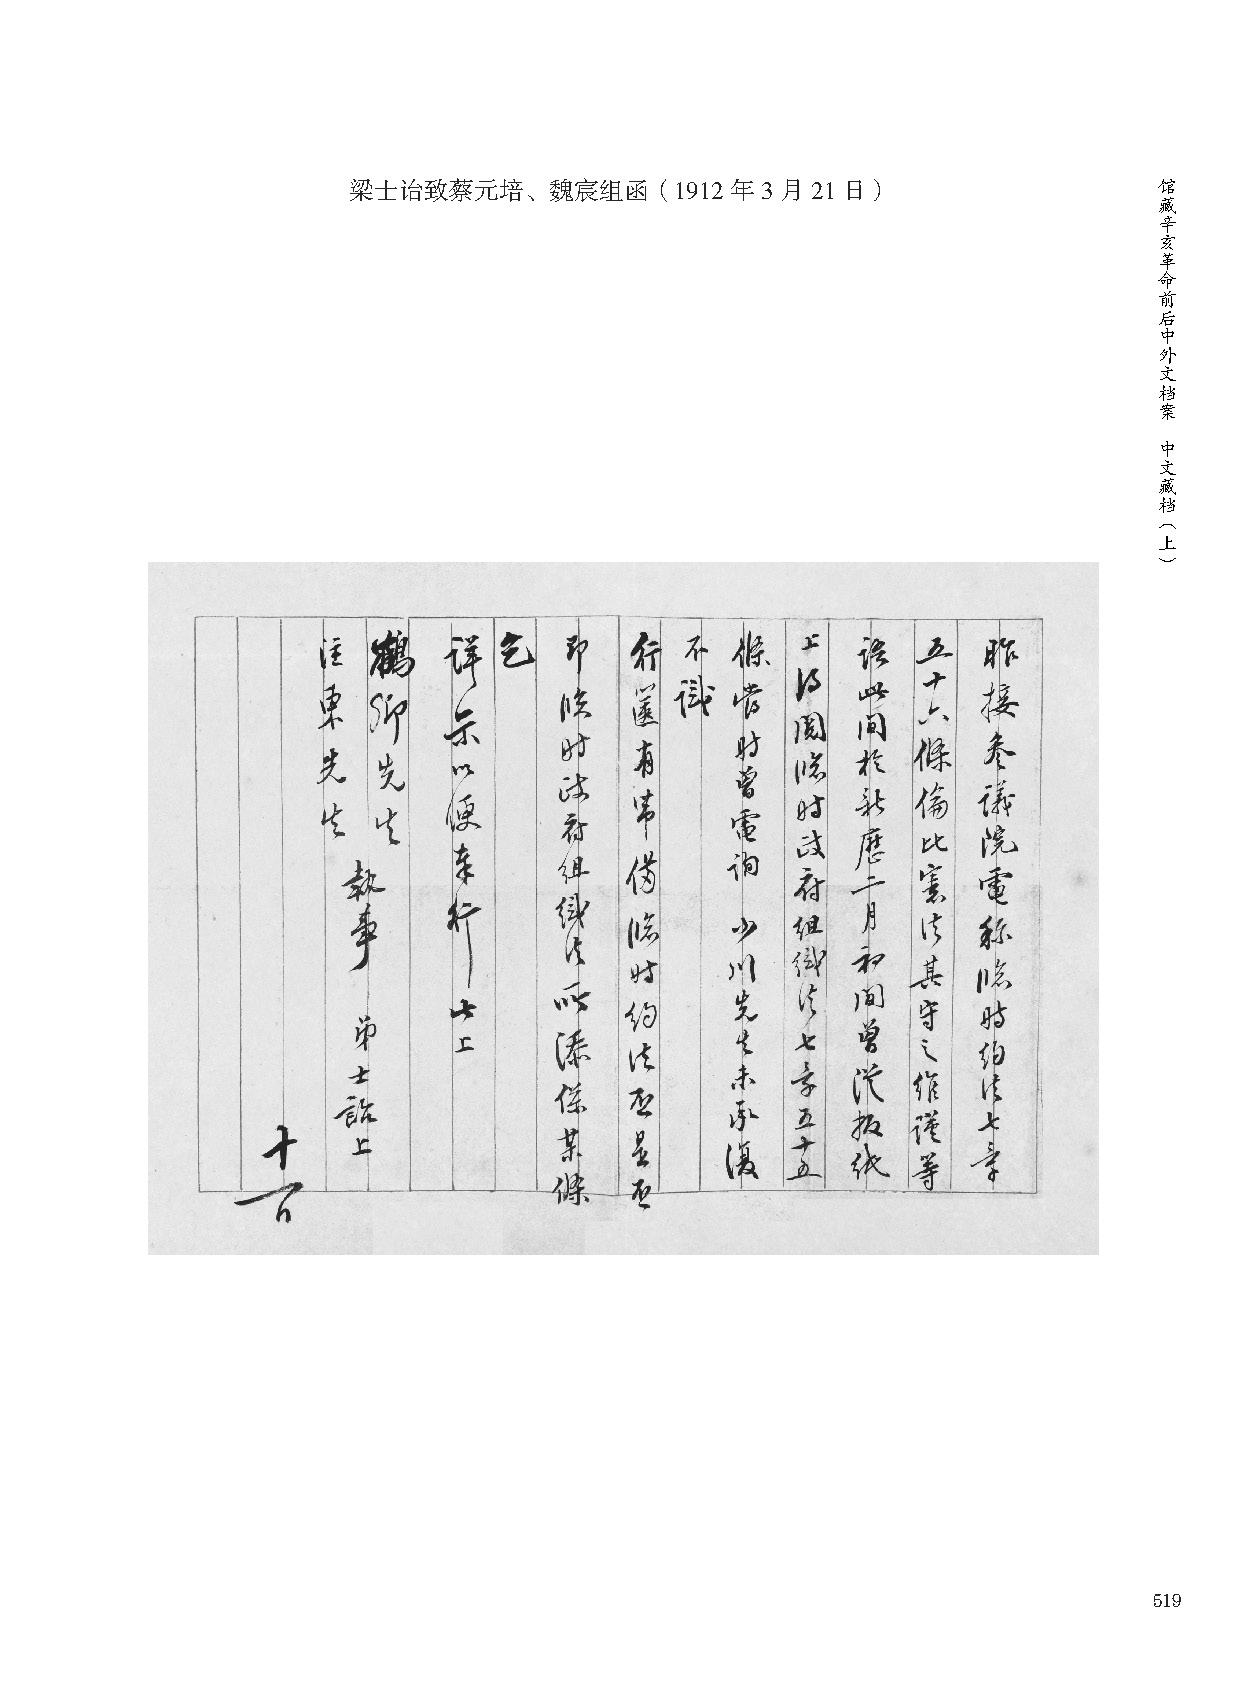 梁士诒致蔡元培、魏宸组函（1912 年 3 月 21 日）
馆藏辛亥革命前后中外文档案　中文藏档（上）
昨接叅議院電稱臨時約法七章
五十六條倫比憲法其守之維謹等
語此間於新歷二月初間曾從报纸
上得閱臨時政府组織法七章五十五
條當時曾電詢　少川先生未承復
不識
行篋有帶備臨時約法否是否
即臨時政府组織法所添係某條
乞
详示以便奉行此上
鶴卿先生
注東先生
執事　弟士詒上
519